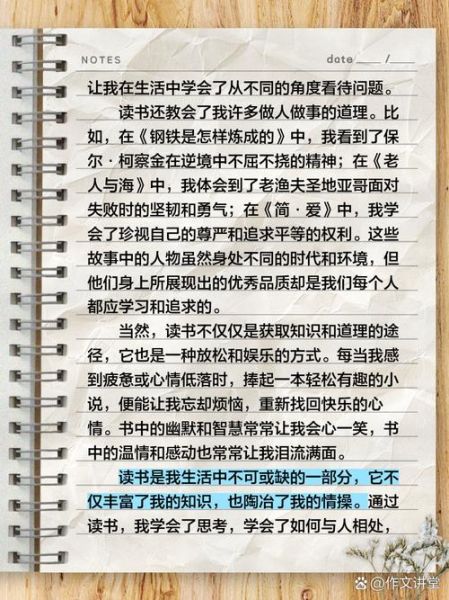 NOTES date ____ /____
让我在生活中学会了从不同的角度看待问题。
读书还教会了我许多做人做事的道理。比
如，在《钢铁是怎样炼成的》中，我看到了保
尔·柯察金在逆境中不屈不挠的精神；在《老
人与海》中，我体会到了老渔夫圣地亚哥面对
失败时的坚韧和勇气；在《简·爱》中，我学
会了珍视自己的尊严和追求平等的权利。这些
故事中的人物虽然身处不同的时代和环境，但
他们身上所展现出的优秀品质却是我们每个人
都应学习和追求的。
当然，读书不仅仅是获取知识和道理的途
径，它也是一种放松和娱乐的方式。每当我感
到疲惫或心情低落时，捧起一本轻松有趣的小
说，便能让我忘却烦恼，重新找回快乐的心
情。书中的幽默和智慧常常让我会心一笑，书
中的温情和感动也常常让我泪流满面。
读书是我生活中不可或缺的一部分，它不
仅丰富了我的知识，也陶冶了我的情操。通过
读书，我学会了思考，学会了如何与人相处，
@作文讲堂